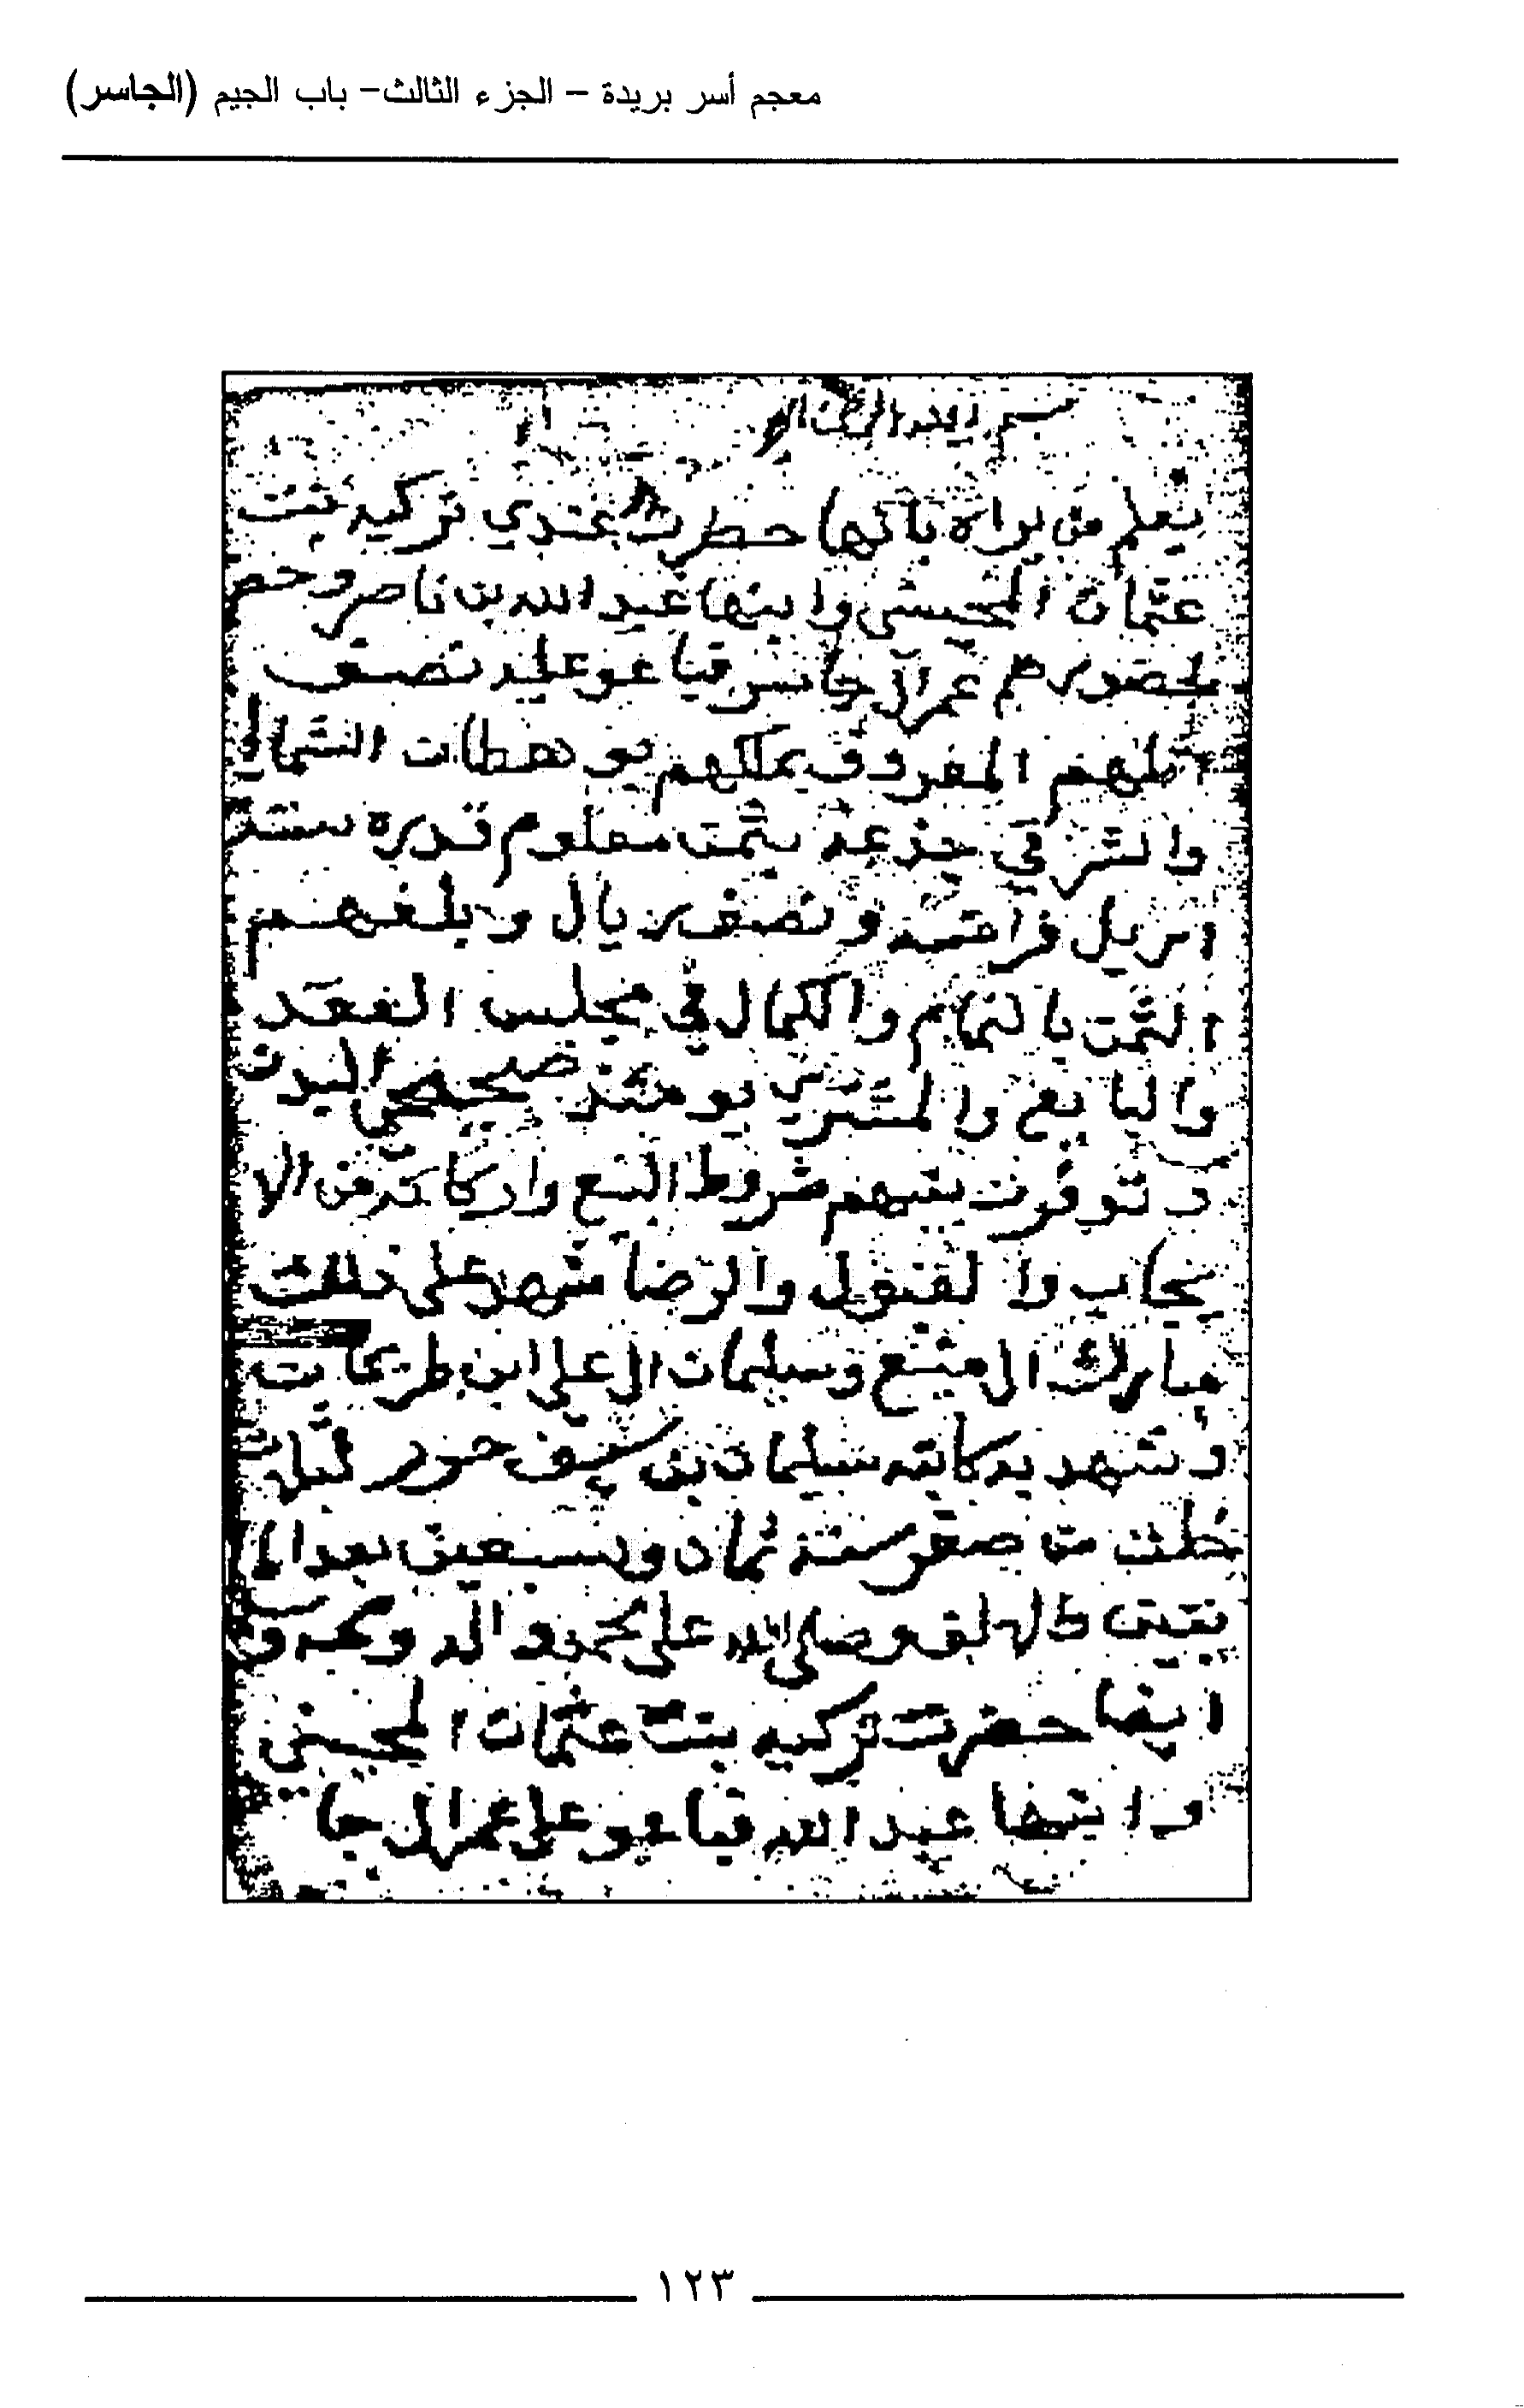 معجم أسر بريدة – الجزء الثالث – باب الجيم (الجاسر)
بسم الله الرحمن
يعلم من يراه بانها حظرت عندي تركيه بنت
عثمان المحيسني وابنها عبد الله بن ناصر وحم
لحضورهم عمر ال جاسر فباعو عليه نصف
المفروق بملكهم بو هطان الشمال
والشرقي جذعه بثمن معلوم قدره سته
اريل فرانسه ونصف ريال وبلغهم
الثمن بالتمام والكمال في مجلس العقد
والبايع والمشتري يومئذ صحيحي البدن
و توفرت بينهم شروط البيع واركانه من الا
يجاب والقبول والرضا شهد على ذلك
مبارك ال منيع وسليمان ال علي ابن
وشهد به كاتبه سليمان بن سيف حرر
خلت من صفر سنة ثمان وسبعين بعد الما
يتين والالف وصلى الله على محمد واله وصحبه و
ايضا حضرت تركيه بنت عثمان المحيسني
وابنها عبد الله فباعو على عمر ال جا
١٢٣